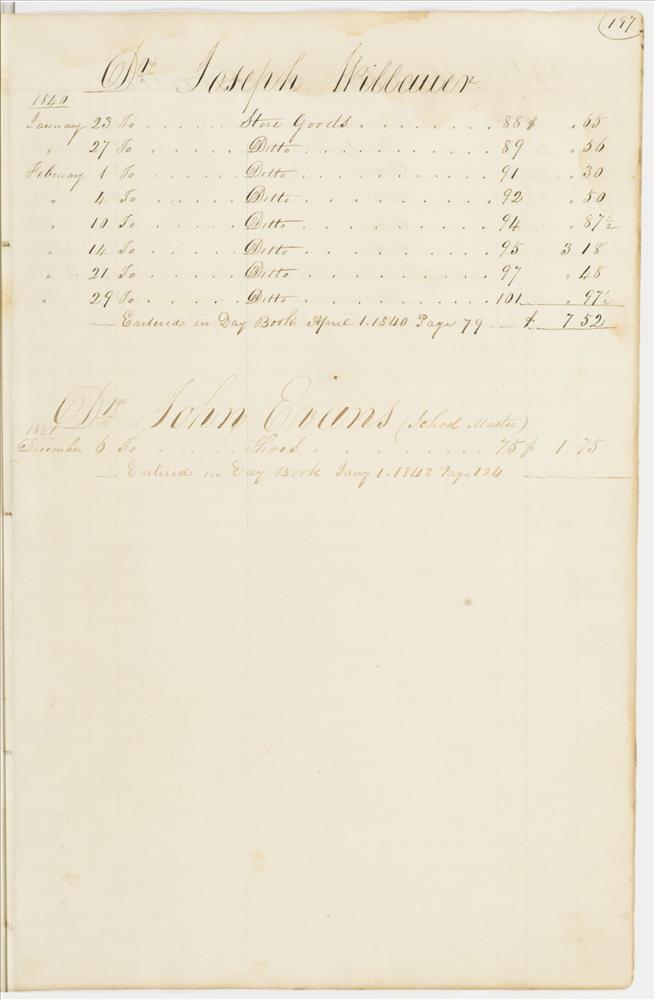 197
Dr. Joseph Willauer
1840
January 23 To . . . . . Store Goods . . . . . . . 88 $ " 65
" 27 To . . . . . Ditto . . . . . . . . . 89 " 56
February 1 To . . . . . Ditto . . . . . . . . . 91 " 30
" 4 To . . . . . Ditto . . . . . . . . . 92 " 50
" 10 To . . . . . Ditto . . . . . . . . . 94 " 87½
" 14 To . . . . . Ditto . . . . . . . . . 95 3 18
" 21 To . . . . . Ditto . . . . . . . . . 97 " 48
" 29 To . . . . . Ditto . . . . . . . . . 101 " 97½
— Entered in Day Book April 1. 1840 Page 79 — $ 7 52
Dr. John Evans (School Master)
1841
December 6 To . . . . . Shoes . . . . . . . . 75 $ 1 75
— Entered in Day Book Jany 1. 1842 Page 124 —